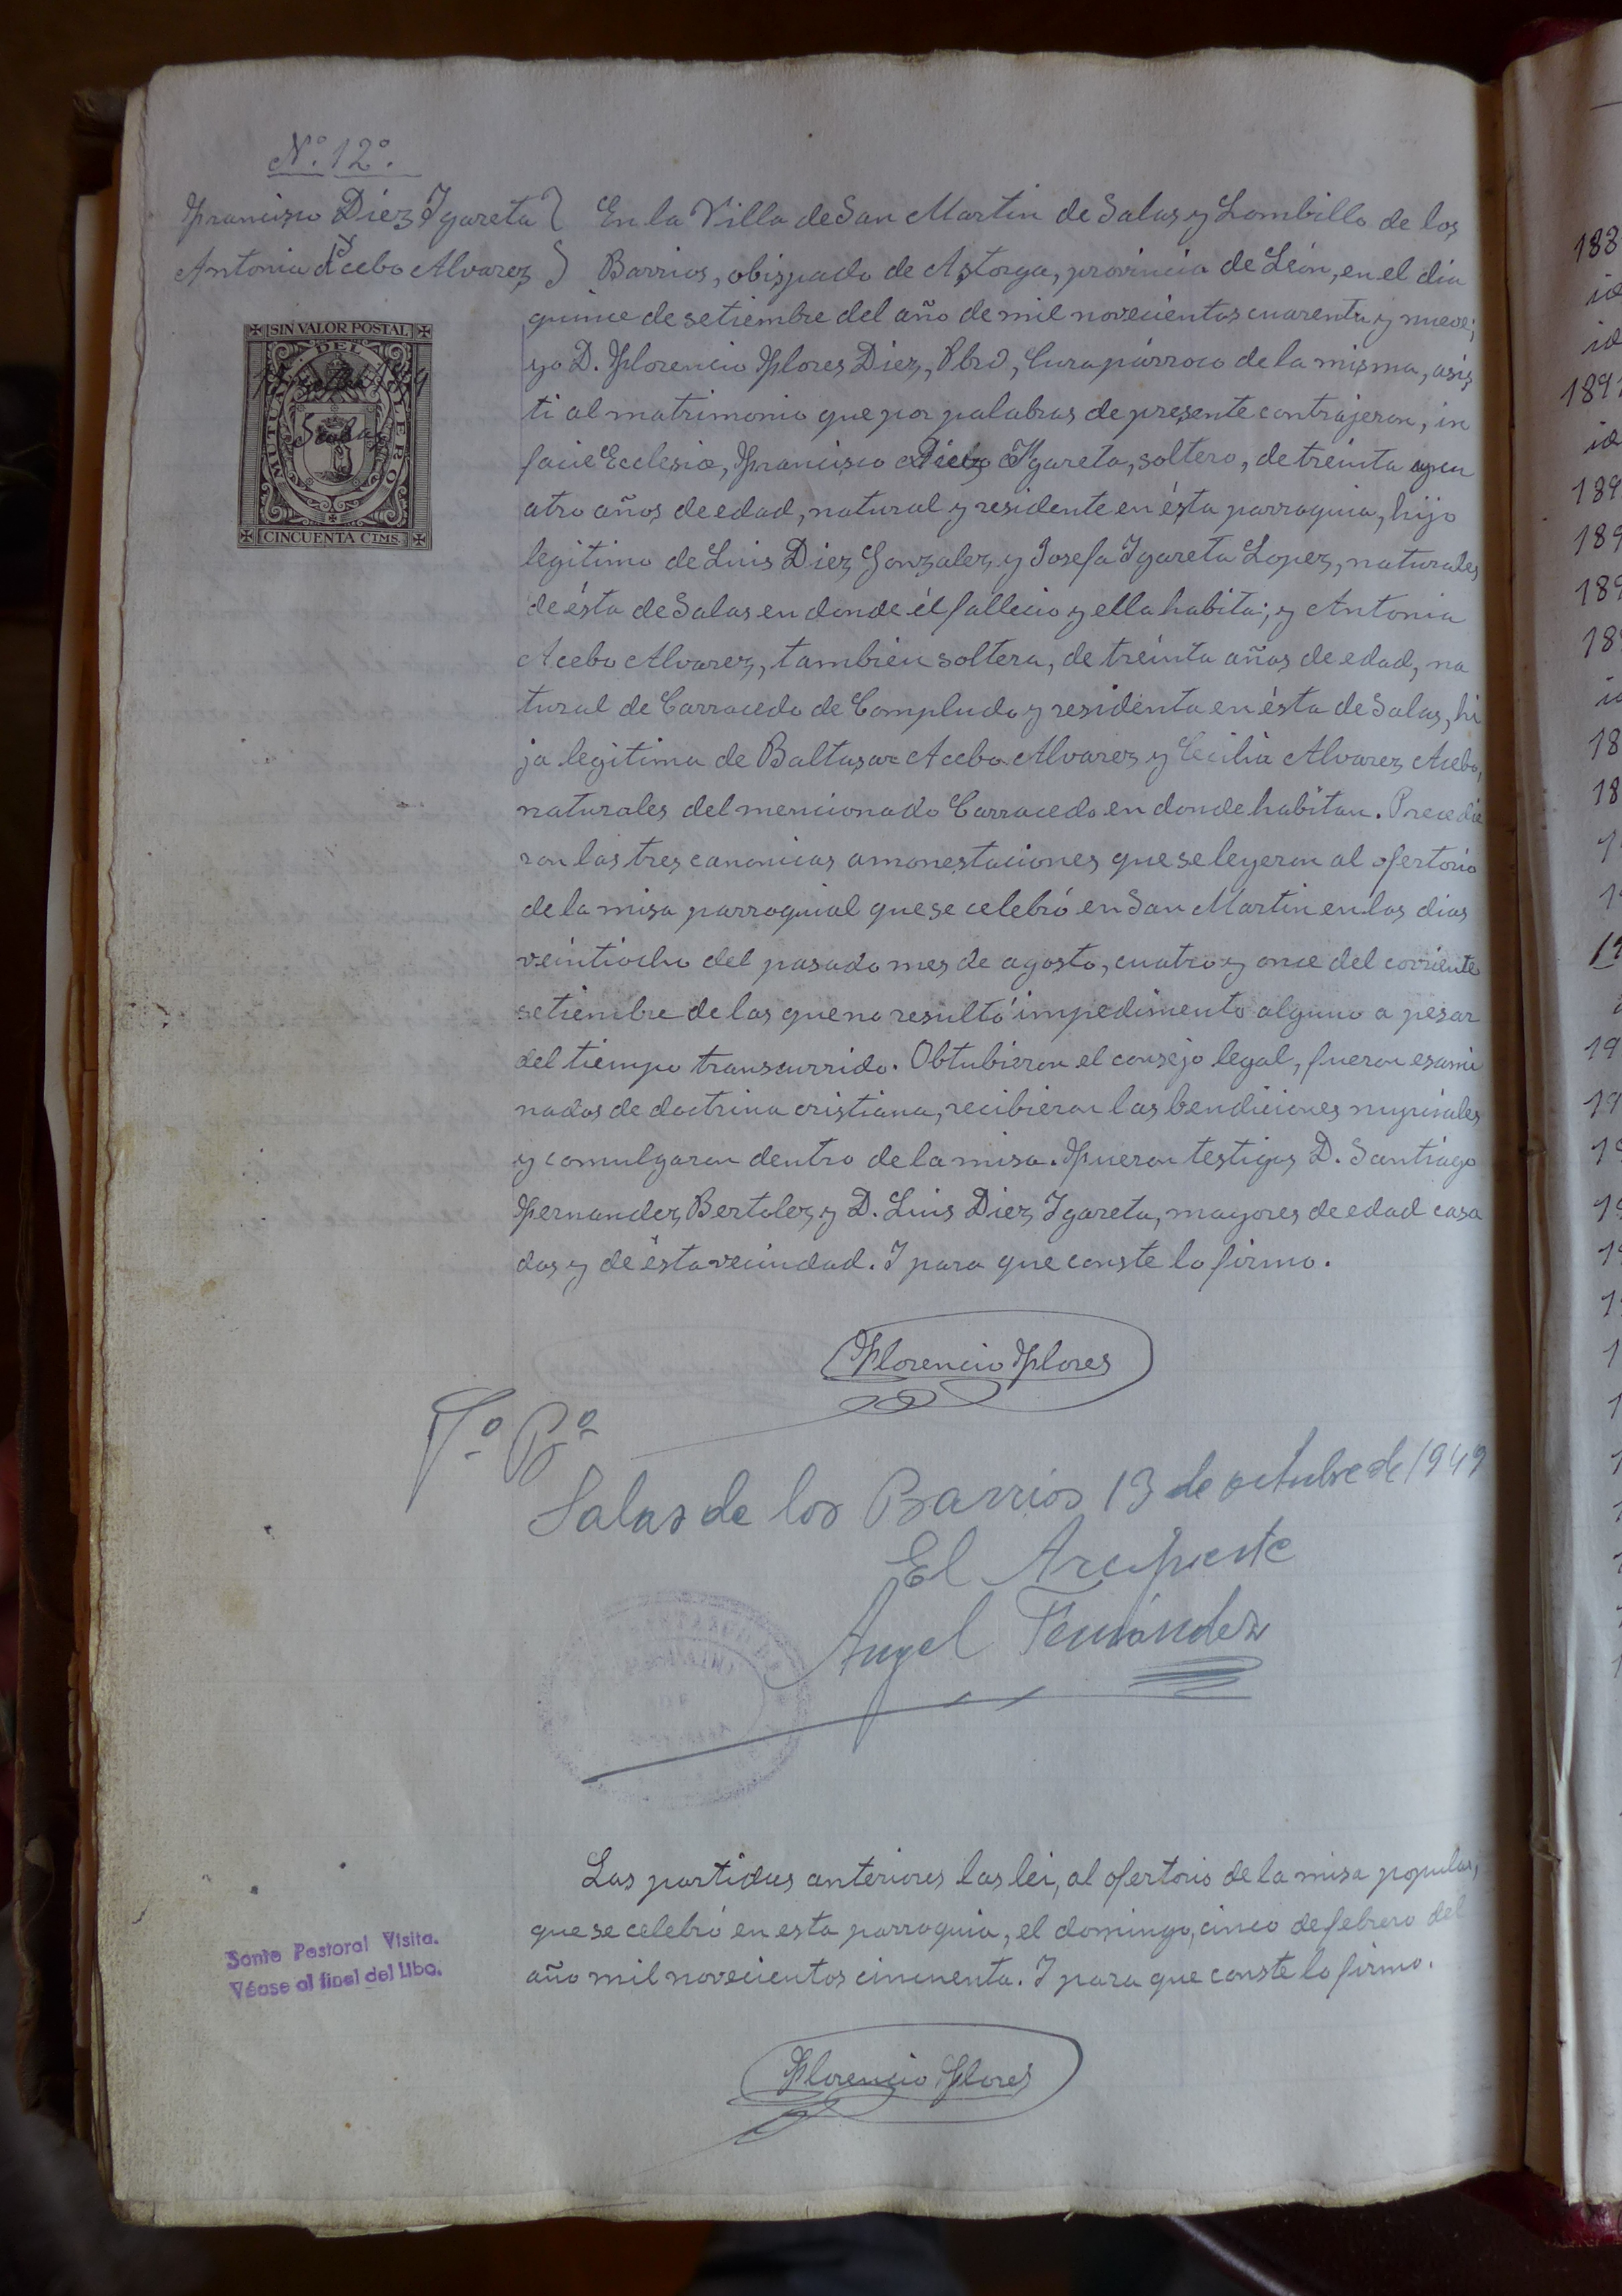 N.º 12º.
Francisco Diez Igareta
Antonia Acebo Alvarez
SIN VALOR POSTAL
DEL
CLERO
MUTUAL
Salas
CINCUENTA CTMS.
En la Villa de San Martin de Salas y Lombillo de los
Barrios, obispado de Astorga, provincia de León, en el dia
quince de setiembre del año de mil novecientos cuarenta y nueve;
yo D. Florencio Flores Diez, Pbro, Cura párroco de la misma, asis
ti al matrimonio que por palabras de presente contrajeron, in
facie Ecclesiæ, Francisco Diez Igareta, soltero, de treinta y cu
atro años de edad, natural y residente en ésta parroquia, hijo
legitimo de Luis Diez Gonzalez y Josefa Igareta Lopez, naturales
de ésta de Salas en donde él fallecio y ella habita; y Antonia
Acebo Alvarez, tambien soltera, de treinta años de edad, na
tural de Carracedo de Compludo y residenta en ésta de Salas, hi
ja legitima de Baltasar Acebo Alvarez y Cecilia Alvarez Acebo,
naturales del mencionado Carracedo en donde habitan. Precedie
ron las tres canonicas amonestaciones que se leyeron al ofertorio
de la misa parroquial que se celebró en San Martin en los dias
veintiocho del pasado mes de agosto, cuatro y once del corriente
setiembre de las que no resultó impedimento alguno a pesar
del tiempo transcurrido. Obtubieron el consejo legal, fueron esami
nados de doctrina cristiana, recibieron las bendiciones nupciales
y comulgaron dentro de la misa. Fueron testigos D. Santiago
Fernandez Bertolez y D. Luis Diez Igareta, mayores de edad casa
dos y de ésta vecindad. I para que conste lo firmo.
Florencio Flores
Vº Bº
Salas de los Barrios 13 de octubre de 1949
El Arcipreste
Angel Fernández
Las partidas anteriores las lei, al ofertorio de la misa popular,
que se celebró en esta parroquia, el domingo, cinco de febrero del
año mil novecientos cincuenta. I para que conste lo firmo.
Santa Pastoral Visita.
Véase al final del Libo.
Florencio Flores